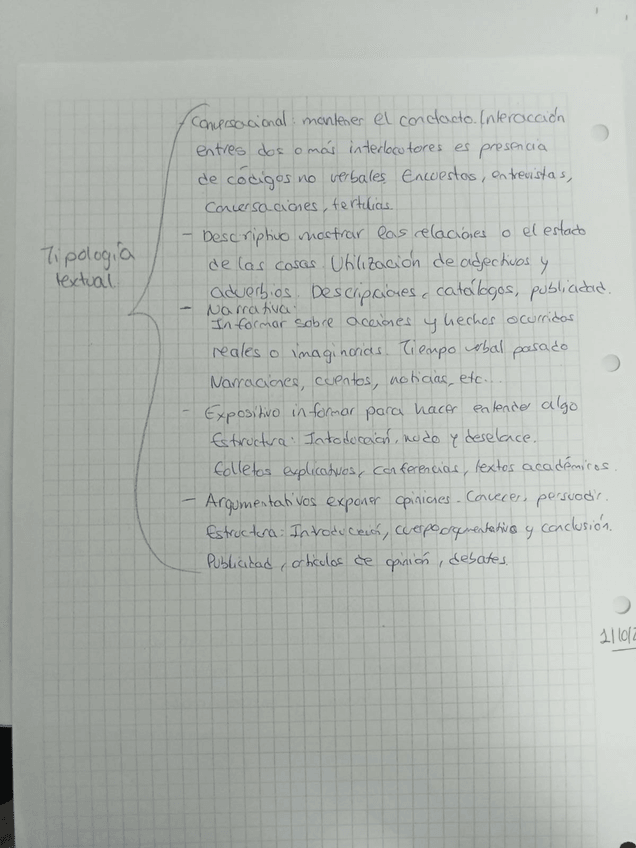 Conversacional: mantener el condacto. Interacción
entres dos o más interlocutores es presencia
de códigos no verbales Encuestas, entrevistas,
Conversaciones, tertilias.
Tipología
textual
- Descriptivo mostrar las relaciones o el estado
de las cosas. Utilización de adjectivos y
adverbios. Descripciones, catálogos, publicidad.
- Narrativa:
Informar sobre acciones y hechos ocurridos
reales o imaginarias. Tiempo verbal pasado
Narraciones, cuentos, noticias, etc...
- Expositivo informar para hacer entender algo
Estructura: Intoducción, nudo y deselace.
Folletos explicativos, conferencias, textos académicos.
- Argumentativos exponer opiniones. Convecer, persuadir.
Estructura: Introducción, cuerpo argumentativo y conclusión.
Publicidad, artículos de opinión, debates.
1/10/2